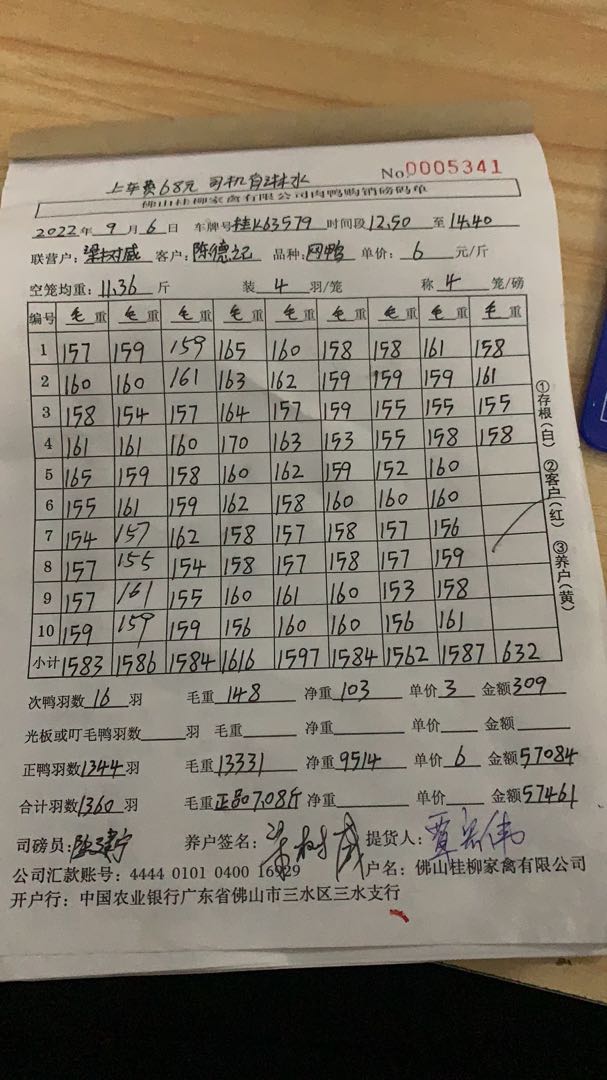 上车费68元 司机自淋水
No.0005341
佛山桂柳家禽有限公司肉鸭购销磅码单
2022年 9 月 6 日 车牌号桂K63579 时间段12.50 至14.40
联营户:梁树威 客户:陈德记 品种:网鸭 单价: 6 元/斤
空笼均重:11.36 斤 装 4 羽/笼 称 4 笼/磅
编号 毛重 毛重 毛重 毛重 毛重 毛重 毛重 毛重 毛重
1 157 159 159 165 160 158 158 161 158
2 160 160 161 163 162 159 159 159 161
3 158 154 157 164 157 159 155 155 155
4 161 161 160 170 163 153 155 158 158
5 165 159 158 160 162 159 152 160
6 155 161 159 162 158 160 160 160
7 154 157 162 158 157 158 157 156
8 157 155 154 158 157 158 157 159
9 157 161 155 160 161 160 153 158
10 159 159 159 156 160 160 156 161
小计 1583 1586 1584 1616 1597 1584 1562 1587 632
①存根(白) ②客户(红) ③养户(黄)
次鸭羽数 16 羽 毛重 148 净重 103 单价 3 金额 309
光板或叮毛鸭羽数 羽 毛重 净重 单价 金额
正鸭羽数1344羽 毛重13331 净重9514 单价 6 金额57084
合计羽数1360羽 毛重正品7.08斤 净重 单价 金额57461
司磅员: 养户签名:梁树威 提货人:
公司汇款账号:4444 0101 0400 16929 户名:佛山桂柳家禽有限公司
开户行:中国农业银行广东省佛山市三水区三水支行